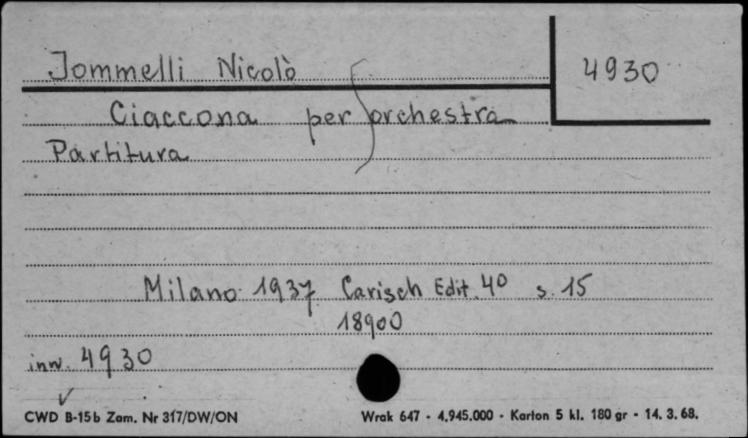 Jommelli Nicolò 4930
Ciaccona per orchestra
Partitura
Milano 1937 Carisch Edit. 4° s. 15
18900
inw. 4930
CWD B-15b Zam. Nr 317/DW/ON Wrak 647 - 4.945.000 - Karton 5 kl. 180 gr - 14. 3. 68.